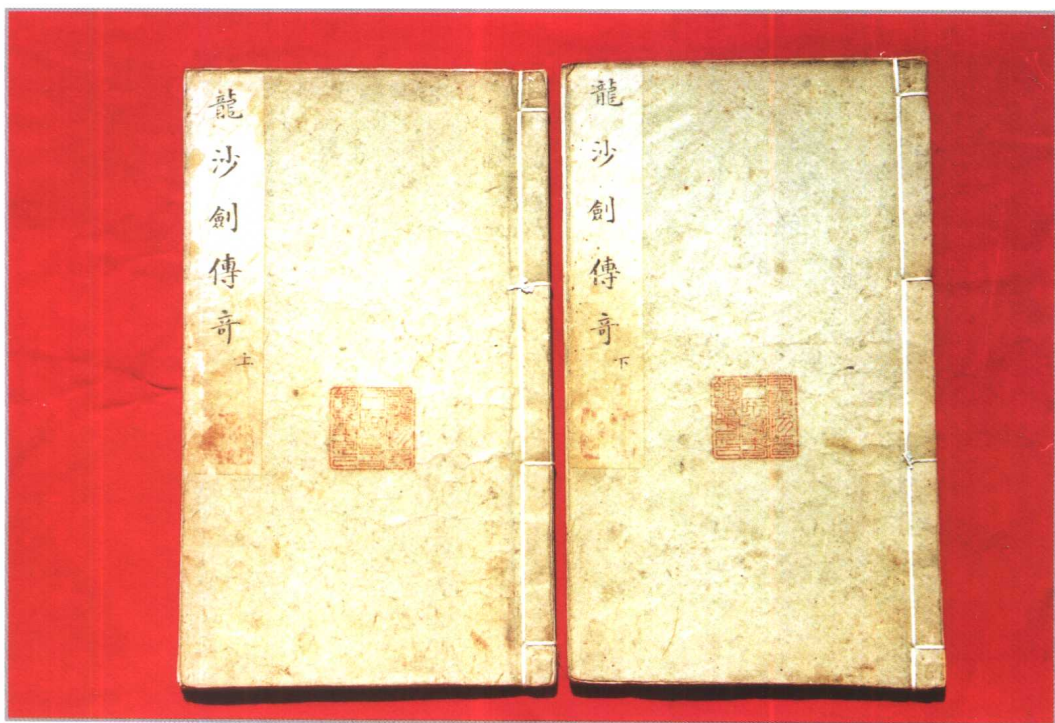 龍沙劍傳奇 上
龍沙劍傳奇 下